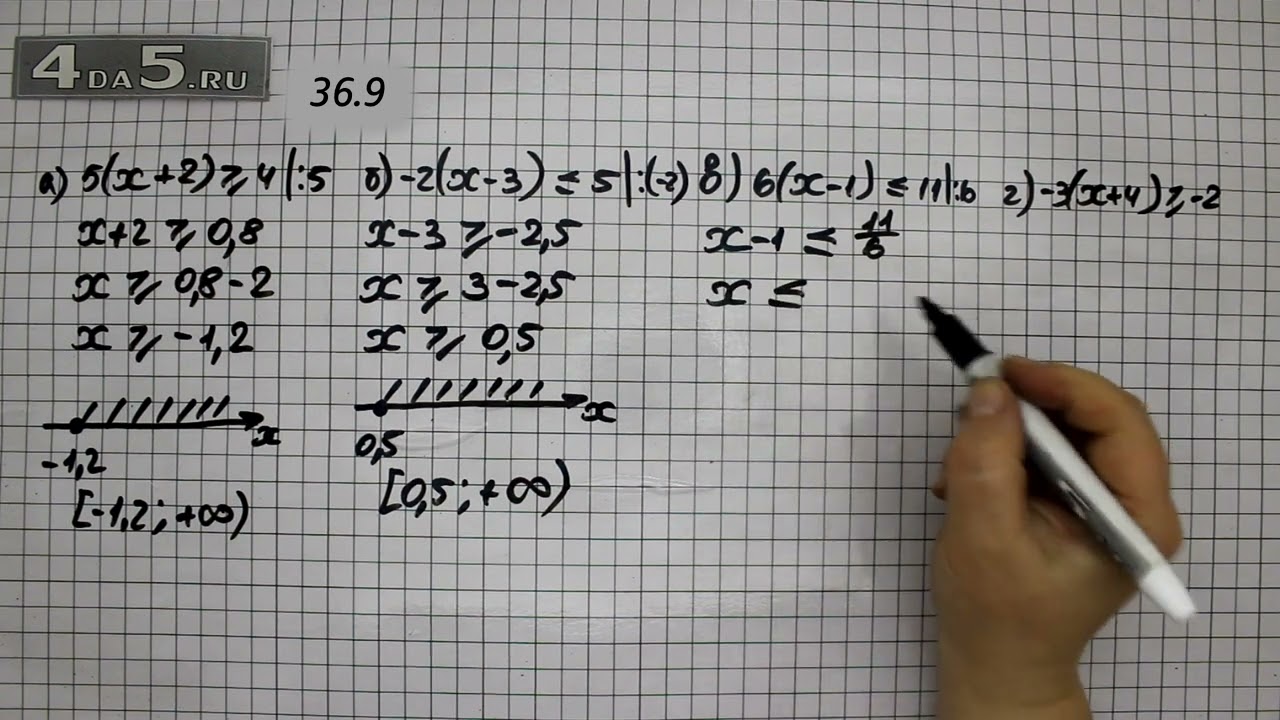 4DA5.RU
36.9
а) 5(x+2) ⩾ 4 |:5
x+2 ⩾ 0,8
x ⩾ 0,8-2
x ⩾ -1,2
x
-1,2
[-1,2; +∞)
б) -2(x-3) ≤ 5 |:(-2)
x-3 ⩾ -2,5
x ⩾ 3-2,5
x ⩾ 0,5
x
0,5
[0,5; +∞)
в) 6(x-1) ≤ 11 |:6
x-1 ≤ 11/6
x ≤
г) -3(x+4) ⩾ -2